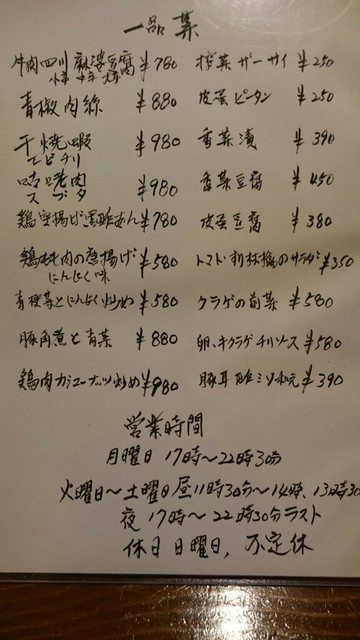 一品菜
牛肉四川麻婆豆腐 ¥780
小辛 中辛 大辛
青椒肉絲 ¥880
干焼蝦 ¥980
エビチリ
咕咾肉 ¥980
スブタ
鶏唐揚げ黒酢あん ¥780
鶏もも肉の唐揚げ ¥580
にんにく味
青梗菜とにんにく炒め ¥580
豚角煮と青菜 ¥880
鶏肉カシューナッツ炒め ¥980
搾菜 ザーサイ ¥250
皮蛋 ピータン ¥250
香菜漬 ¥390
香菜豆腐 ¥450
皮蛋豆腐 ¥380
トマト のサラダ ¥350
クラゲの前菜 ¥580
卵、キクラゲ チリソース ¥580
豚耳 和え ¥390
営業時間
月曜日 17時〜22時30分
火曜日〜土曜日 昼11時30分〜14時、13時30
夜 17時〜22時30分ラスト
休日 日曜日、不定休